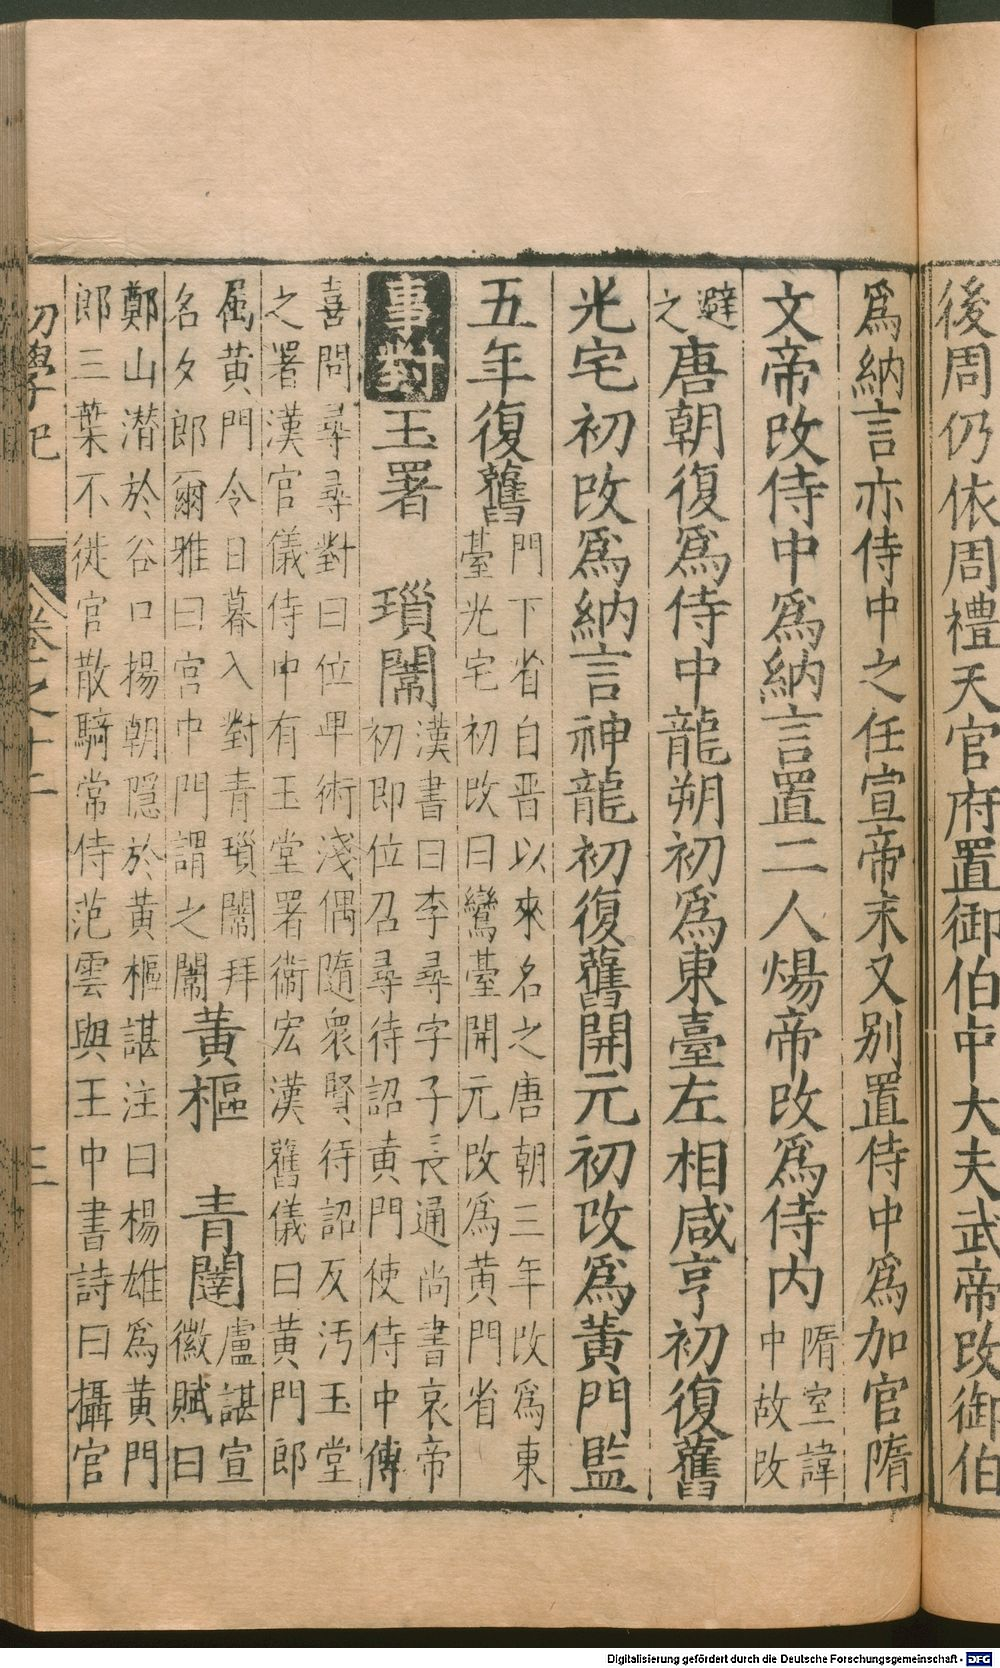 後周仍依周禮天官府置御伯中大夫武帝改御伯
爲納言亦侍中之任宣帝末又別置侍中爲加官隋
文帝改侍中爲納言置二人煬帝改爲侍内隋室諱中故改
避之唐朝復爲侍中龍朔初爲東臺左相咸亨初復舊
光宅初改爲納言神龍初復舊開元初改爲黄門監
五年復舊門下省自晋以來名之唐朝三年改爲東臺光宅初改曰鸞臺開元改爲黄門省
事對玉署 瑣闈漢書曰李尋字子長通尚書哀帝初即位召尋待詔黄門使侍中傅
喜問尋尋對曰位卑術淺偶隨衆賢待詔反汚玉堂
之署漢官儀侍中有玉堂署衞宏漢舊儀曰黄門郎
屬黄門令日暮入對青瑣闈拜
名夕郎爾雅曰宫中門謂之闈黄樞 青闥盧諶宣徽賦曰
鄭山潜於谷口揚朝隱於黄樞諶注曰楊雄爲黄門
郎三葉不徙官散騎常侍范雲與王中書詩曰攝官
初學記 卷之十二 三
Digitalisierung gefördert durch die Deutsche Forschungsgemeinschaft - DFG